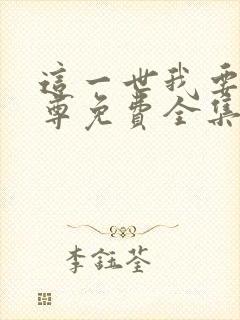 這一世我要
尊免費全集
李鈺荃